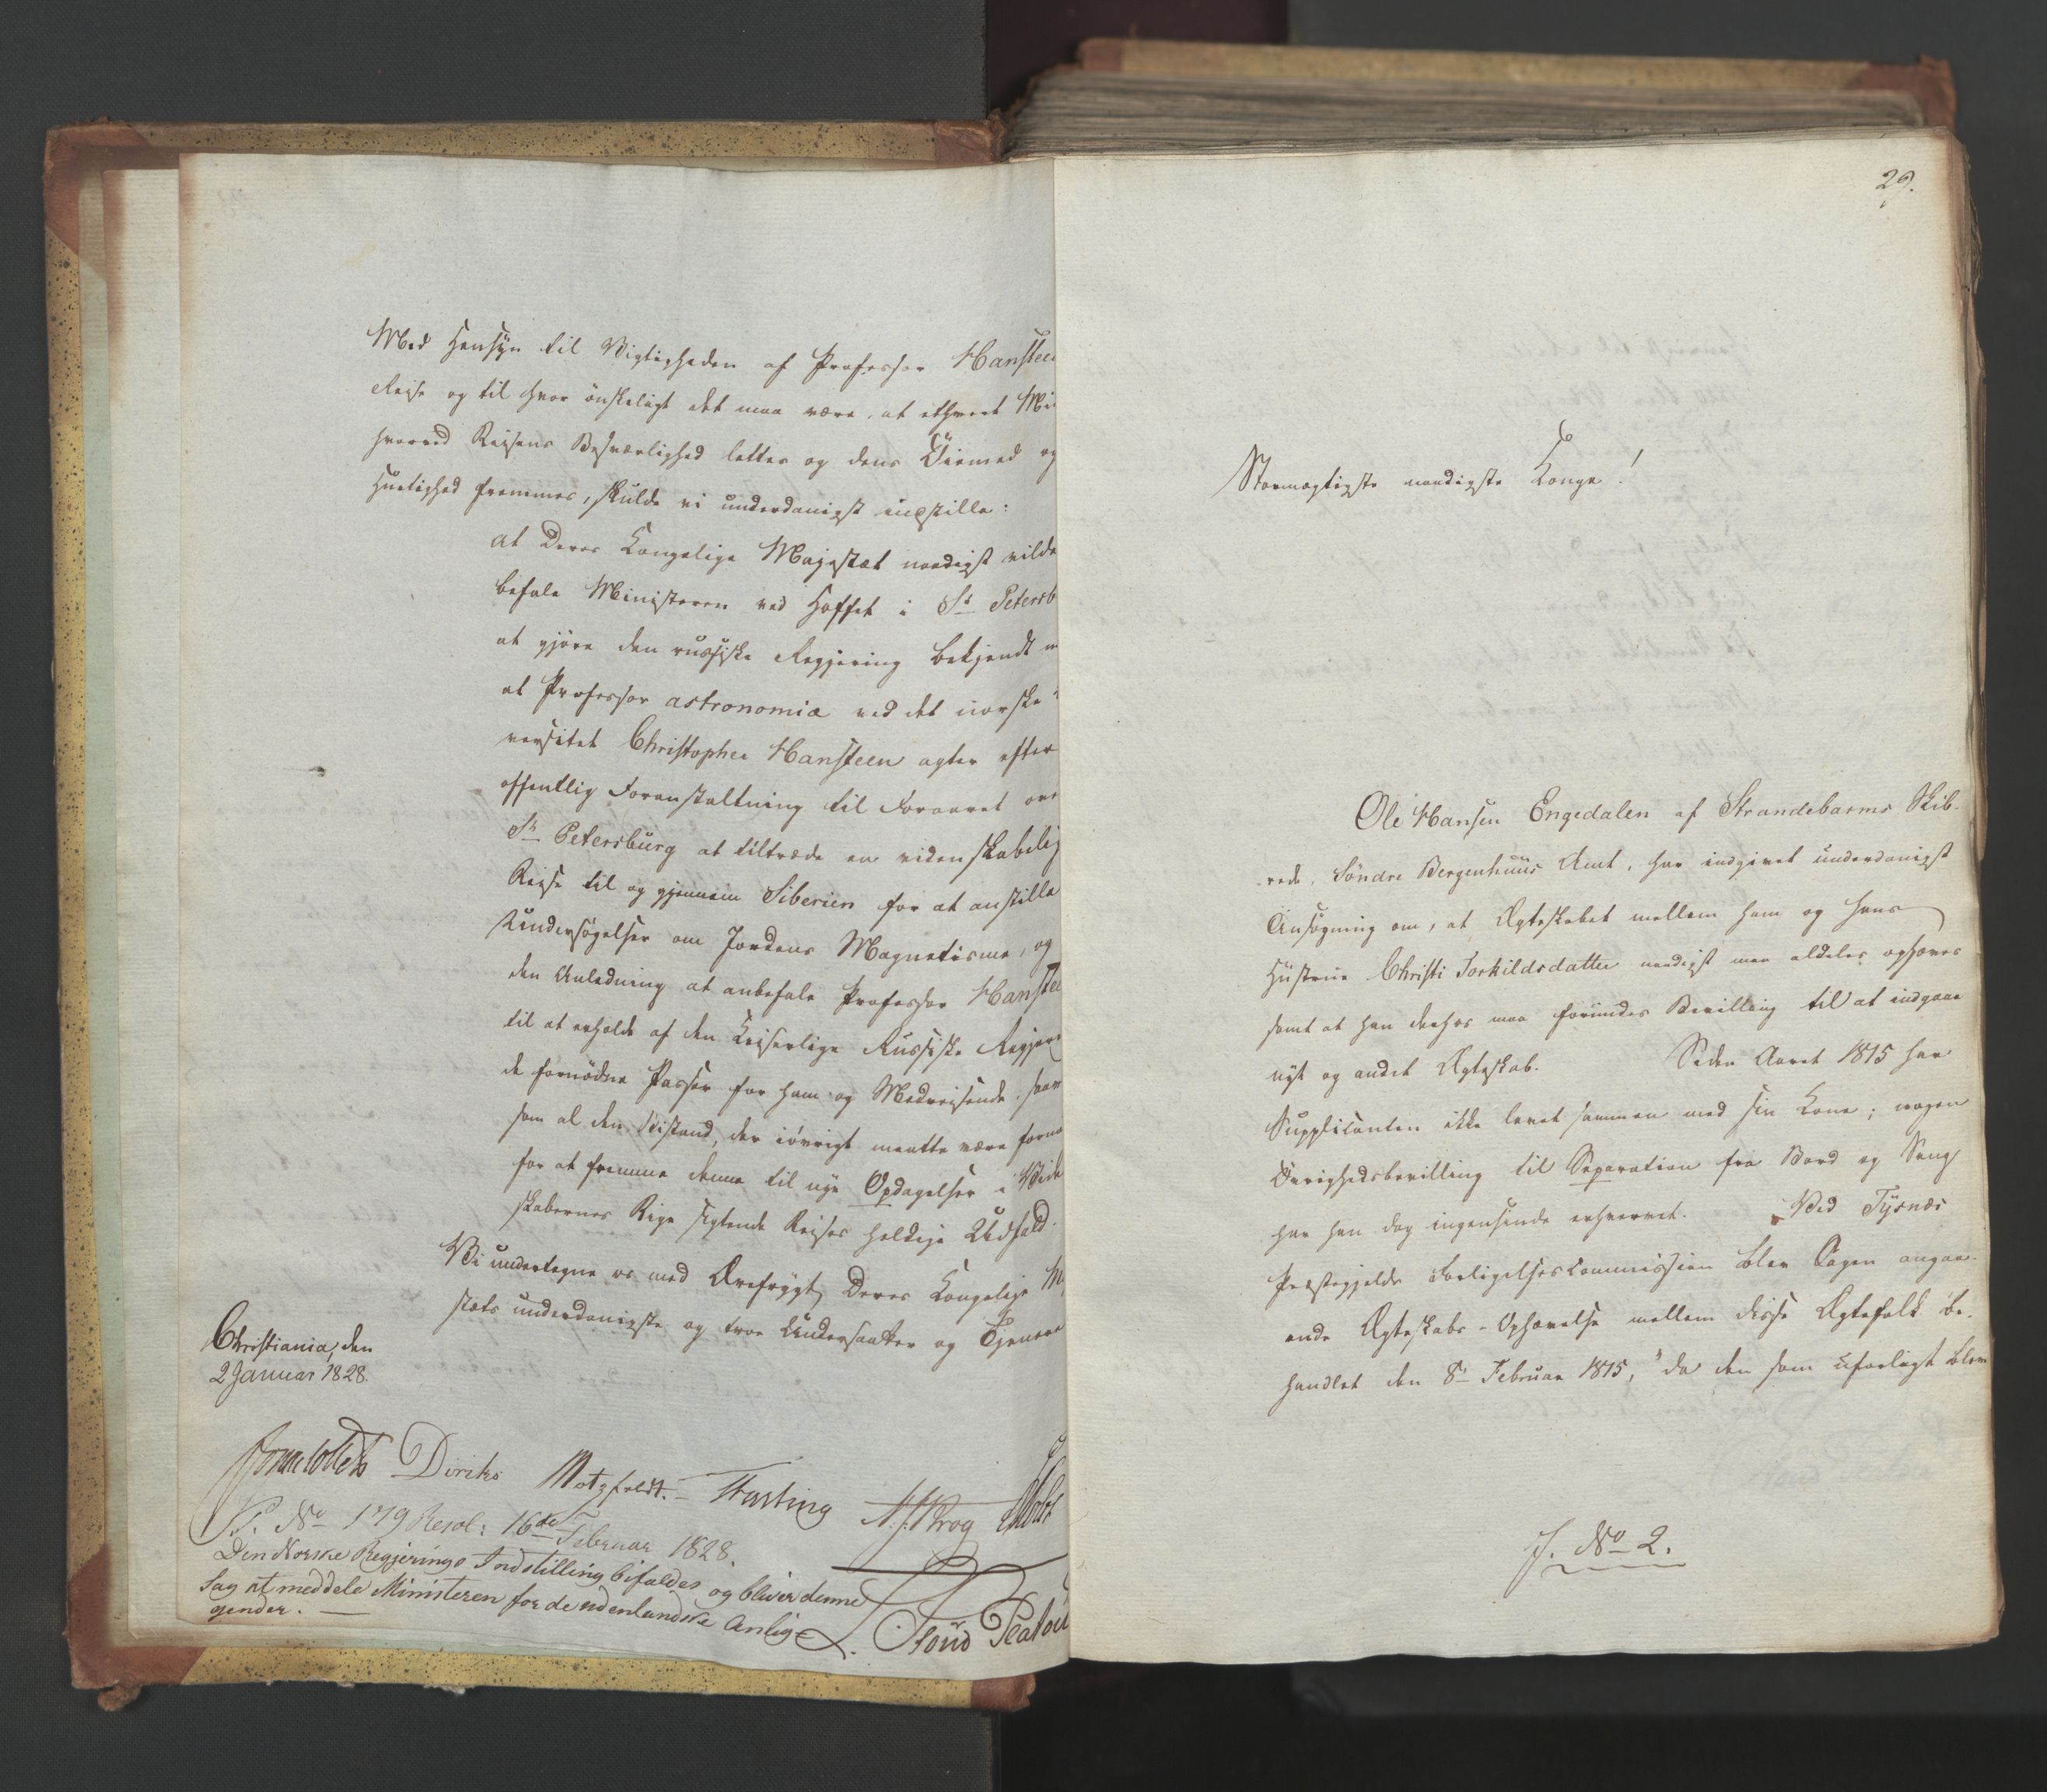 Med Hensyn til Vigtigheden af Professor Hansteen
Reise og til hvor ønskeligt det maa være, at ethvert Mi
hvorved Reisens Besværlighed lettes og dens Øiemed og
Hurtighed fremmes, skulde vi underdanigst indstille:
at Deres Kongelige Majestæt naadigst vilde
befale Ministeren ved Hoffet i St. Petersb
at gjøre den russiske Regjering bekjendt m
at Professor astronomiæ ved det norske
versitet Christopher Hansteen agter efter
offentlig Foranstaltning til Foraaret over
St. Petersburg at tiltræde en videnskabelig
Reise til og gjennem Siberien for at anstille
Undersøgelser om Jordens Magnetisme, og
den Anledning at anbefale Professor Hanstee
til at erholde af den Keiserlige Russiske Regjer
de fornødne Passer for ham og Medreisende, saa
som al den Bistand, der iøvrigt maatte være forn
for at fremme denne til nye Opdagelser i Vide
skabernes Rige sigtende Reises heldige Udfald.
Vi undertegne os med Ærefrygt, Deres Kongelige M
stæts underdanigste og troe Undersaatter og Tjenere
Christiania, den
2 Januar 1828.
Jonas Collett Diriks Motzfeldt. Fasting H. J. Krog Holst
P. No 179 Resol: 16de Februar 1828.
Den Norske Regjerings Indstilling bifaldes og bliver denne
Sag at meddele Ministeren for de udenlandske Anlig-
gender.
29.
Stormægtigste naadigste Konge!
Ole Hansen Engedalen af Strandebarms Skib-
rede, Søndre Bergenhuus Amt, har indgivet underdanigst
Ansøgning om, at Ægteskabet mellem ham og hans
Hustrue Christi Torkildsdatter naadigst maa aldeles ophæves
samt at han derhos maa forundes Bevilling til at indgaae
nyt og andet Ægteskab. Siden Aaret 1815 har
Supplicanten ikke levet sammen med sin Kone; nogen
Øvrighedsbevilling til Separation fra Bord og Seng
har han dog ingensinde erhvervet. Ved Tysnæs
Præstegjelds Forligelsescommission blev Sagen angaa-
ende Ægteskabs-Ophævelse mellem disse Ægtefolk be-
handlet den 8de Februar 1815, "da den som uforligt blev
J. No 2.